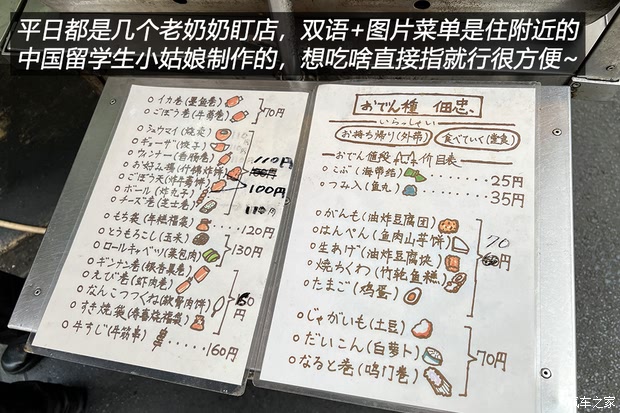 平日都是几个老奶奶盯店，双语+图片菜单是住附近的
中国留学生小姑娘制作的，想吃啥直接指就行很方便~
イカ巻(墨鱼卷)
ごぼう巻(牛蒡卷)
70円
シュウマイ(烧卖)
ギョーザ(饺子)
ウィンナー(香肠卷)
お好み揚(什锦炸饼)
ごぼう天(炸牛蒡饼)
ボール(炸丸子)
チーズ巻(芝士卷)
110円
100円
もち袋(年糕福袋)
120円
とうもろこし(玉米)
ロールキャベツ(菜包肉)
130円
ギンナン巻(银杏果卷)
えび巻(虾肉卷)
なんこつつくね(软骨肉饼)
すき焼袋(寿喜烧福袋)
牛すじ(牛筋串)
160円
おでん種 佃忠、
いらっしゃい
お持ち帰り(外带)
食べていく(堂食)
こぶ(海带结)
25円
つみ入(鱼丸)
35円
がんも(油炸豆腐团)
はんぺん(鱼肉山芋饼)
生あげ(油炸豆腐块)
焼ちくわ(竹轮鱼糕)
たまご(鸡蛋)
70
円
じゃがいも(土豆)
だいこん(白萝卜)
なると巻(鸣门卷)
70円
汽车之家